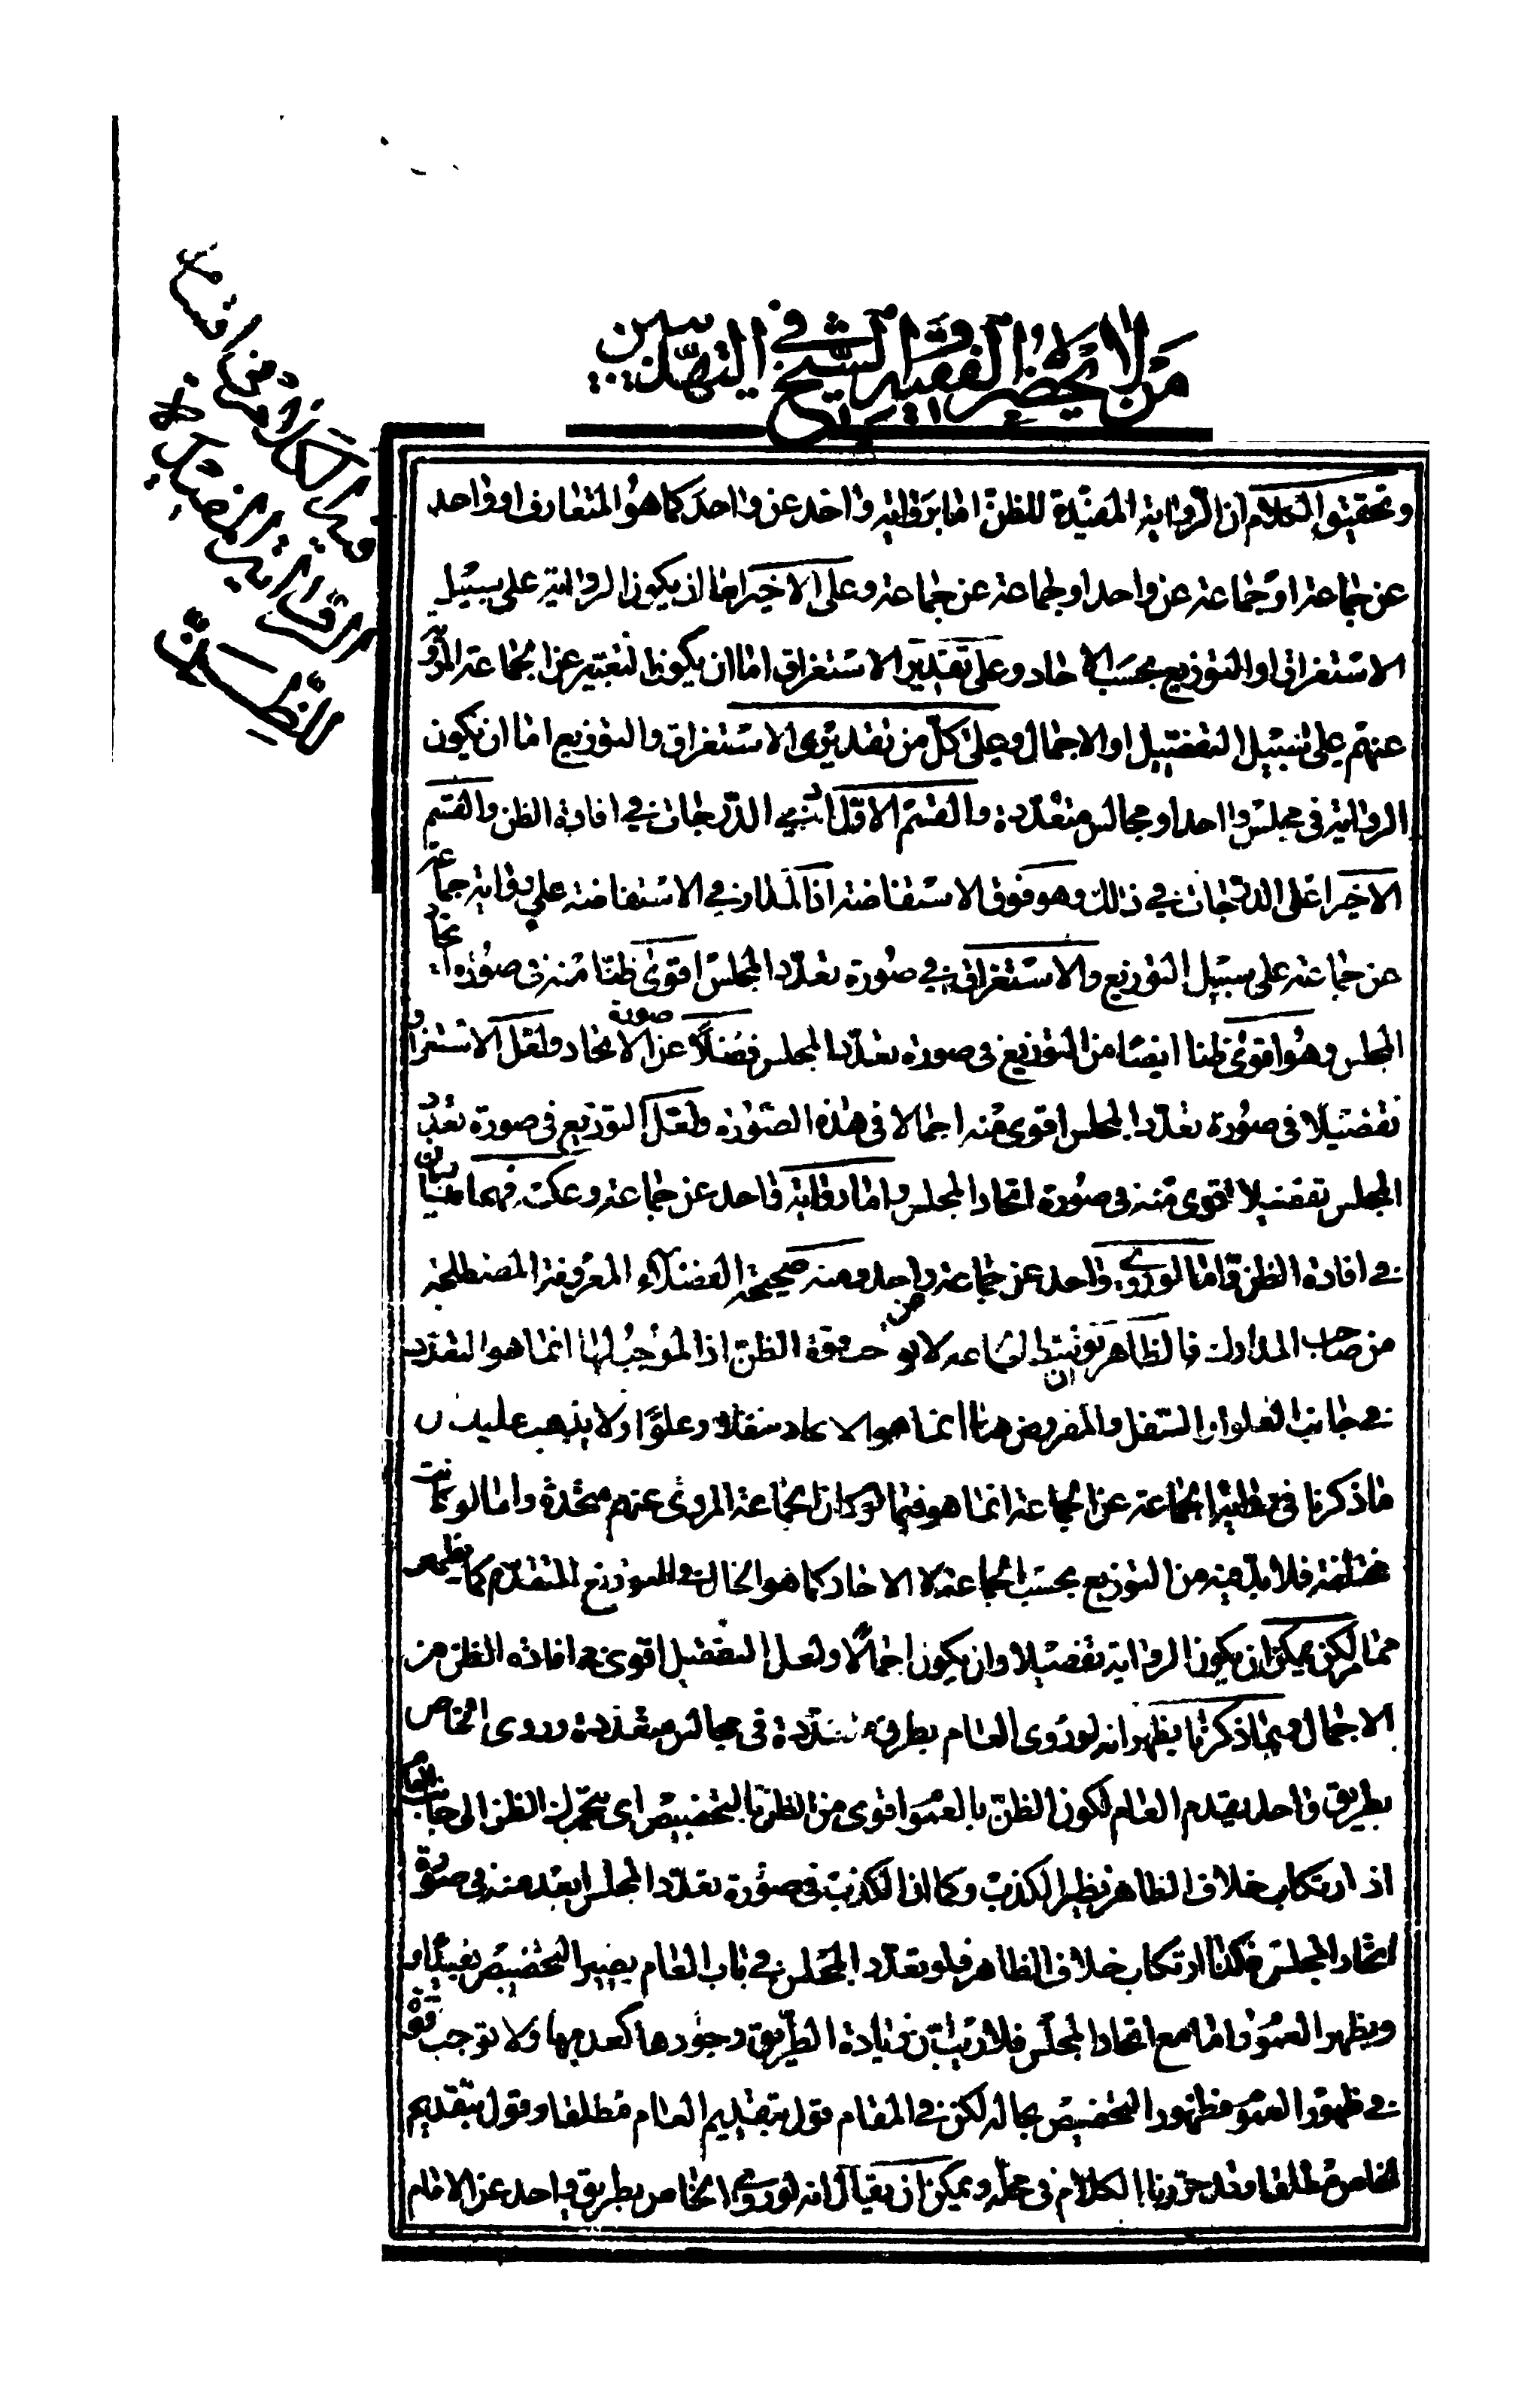 من لا يحضره الفقيه والشيخ في التهذيبين
وتحقيق الكلام ان الرواية المفيدة للظن اما برواية واحد عن واحد كما هو المتعارف او واحد
عن جماعة او جماعة عن واحد او جماعة عن جماعة وعلى الاخير اما ان يكون الرواية على سبيل
الاستغراق او التوزيع بحسب الاحاد وعلى تقدير الاستغراق اما ان يكون التعبير عن الجماعة المروية
عنهم على سبيل التفصيل او الاجمال وعلى كل من تقديرى الاستغراق والتوزيع اما ان يكون
الرواية فى مجلس واحد او مجالس متعددة والقسم الاول ادنى الدرجات في افادة الظن والقسم
الاخير اعلى الدرجات في ذلك وهو فوق الاستفاضة اذ المدار في الاستفاضة على رواية جماعة
عن جماعة على سبيل التوزيع والاستغراق في صورة تعدد المجلس اقوى ظنا منه فى صورة اتحاد
المجلس وهو اقوى ظنا ايضا من التوزيع فى صورة تعدد المجلس فضلا عن صورة الاتحاد ولعل الاستغراق
تفصيلا فى صورة تعدد المجلس اقوى منه اجمالا فى هذه الصورة ولعل التوزيع فى صورة تعدد
المجلس تفصيلا اقوى منه فى صورة اتحاد المجلس واما رواية واحد عن جماعة وعكسه فهما متساويان
في افادة الظن واما لو روى واحد عن جماعة عن واحد ومنه صحيحة الفضلاء المعروفة المصطلحة
من صاحب المدارك فالظاهر ان توسط الجماعة لا يوجب قوة الظن اذ الموجب لها انما هو التعدد
في جانب العلو او السفل والمفروض هنا انما هو الاتحاد سفلا وعلوا ولا يذهب عليك ان
ما ذكرنا فى رواية الجماعة عن الجماعة انما هو فيما لو كان الجماعة المروى عنهم متحدة واما لو كانت
مختلفة فلا بد فيه من التوزيع بحسب الجماعة لا الاحاد كما هو الحال في التوزيع المتقدم كما يظهر
مما مر لكن يمكن ان يكون الرواية تفصيلا وان يكون اجمالا ولعل التفصيل اقوى في افادة الظن من
الاجمال وبما ذكرنا يظهر انه لو روى العام بطرق متعددة فى مجالس متعددة وروى الخاص
بطريق واحد يقدم العام لكون الظن بالعموم اقوى من الظن بالتخصيص اى يتحرك الظن الى جانب العام
اذ ارتكاب خلاف الظاهر نظير الكذب وكما ان الكذب فى صورة تعدد المجلس ابعد منه فى صورة
اتحاد المجلس فكذا ارتكاب خلاف الظاهر فلو تعدد المجلس في باب العام يصير التخصيص بعيدا
ويظهر العموم واما مع اتحاد المجلس فلا ريب ان زيادة الطريق وجودها كعدمها ولا توجب قوة
في ظهور العموم فظهور التخصيص بحاله لكن في المقام قول بتقديم العام مطلقا وقول بتقديم
الخاص مطلقا وقد حررنا الكلام فى محله ويمكن ان يقال انه لو روى الخاص بطريق واحد عن الامام